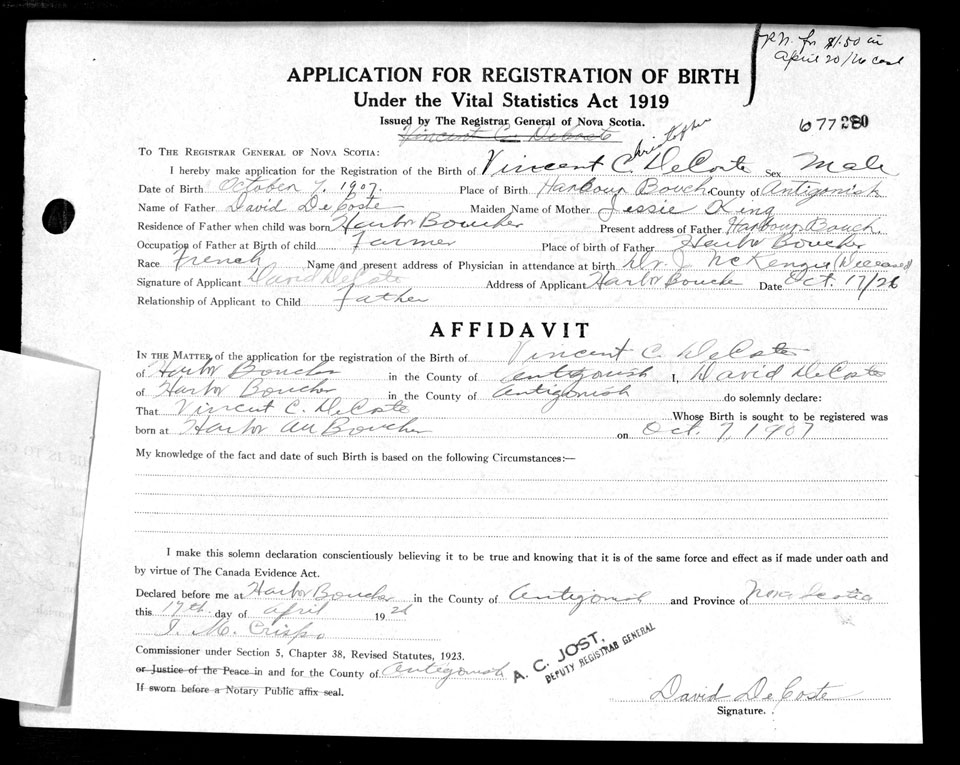 P.N. for $1.50 in
April 20/26
APPLICATION FOR REGISTRATION OF BIRTH
Under the Vital Statistics Act 1919
Issued by The Registrar General of Nova Scotia.
Vincent C. DeCoste
677280
TO THE REGISTRAR GENERAL OF NOVA SCOTIA:
Christopher
I hereby make application for the Registration of the Birth of Vincent C. DeCoste Sex Male
Date of Birth October 7, 1907. Place of Birth Harbour Bouch. County of Antigonish
Name of Father David DeCoste Maiden Name of Mother Jessie King
Residence of Father when child was born Harbor Boucher Present address of Father Harbour Bouch.
Occupation of Father at Birth of child Farmer Place of birth of Father Harbor Boucher
Race French Name and present address of Physician in attendance at birth Dr. J. McKenzie (Deceased)
Signature of Applicant David DeCoste Address of Applicant Harbor Boucher Date Oct. 17/26
Relationship of Applicant to Child Father
AFFIDAVIT
IN THE MATTER of the application for the registration of the Birth of Vincent C. DeCoste
of Harbor Boucher in the County of Antigonish I, David DeCoste
of Harbor Boucher in the County of Antigonish do solemnly declare:
That Vincent C. DeCoste Whose Birth is sought to be registered was
born at Harbor Au Boucher on Oct. 7, 1907
My knowledge of the fact and date of such Birth is based on the following Circumstances:—
I make this solemn declaration conscientiously believing it to be true and knowing that it is of the same force and effect as if made under oath and
by virtue of The Canada Evidence Act.
Declared before me at Harbor Boucher in the County of Antigonish and Province of Nova Scotia
this 17th day of April 1926
J. M. Crispo
Commissioner under Section 5, Chapter 38, Revised Statutes, 1923.
or Justice of the Peace in and for the County of Antigonish
If sworn before a Notary Public affix seal.
A. C. JOST,
DEPUTY REGISTRAR GENERAL
David DeCoste
Signature.